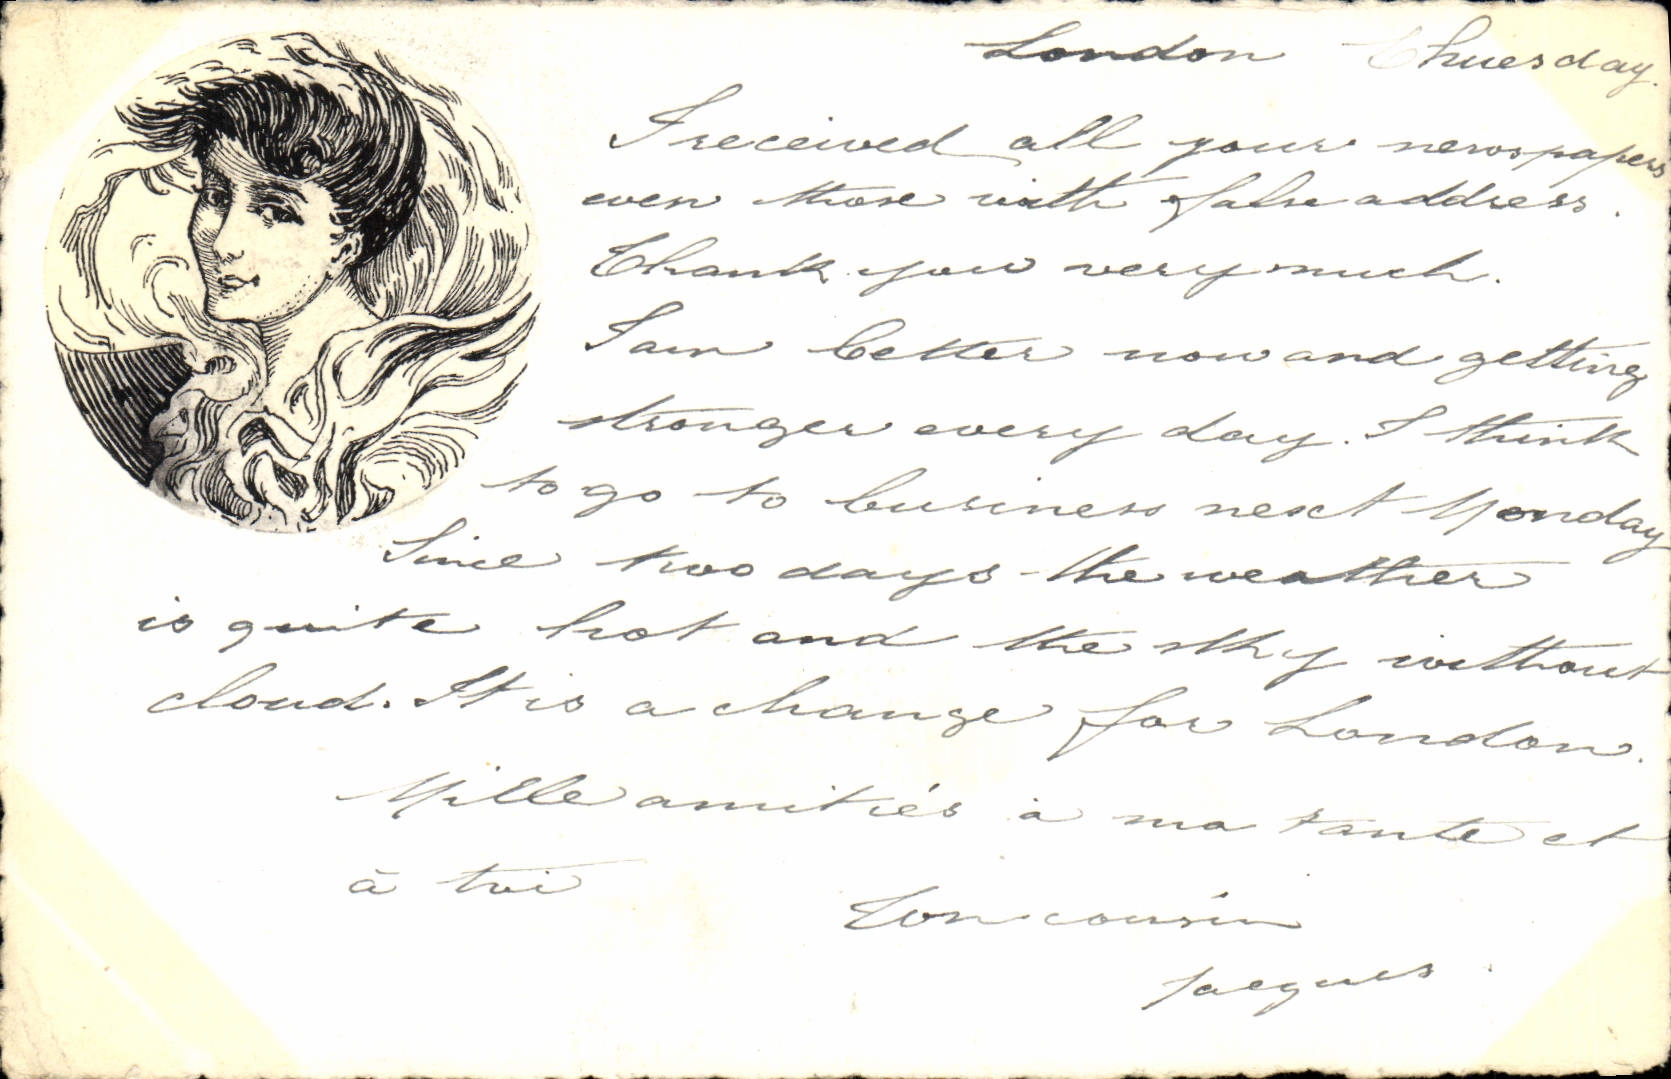 London Thuesday.
I received all your newspapers
even those with false address.
Thank you very much.
I am better now and getting
stronger every day. I think
to go to business next Monday
Since two days the weather
is quite hot and the sky without
cloud. It is a change for London.
Mille amitiés à ma tante et
à toi
Ton cousin
Jacques